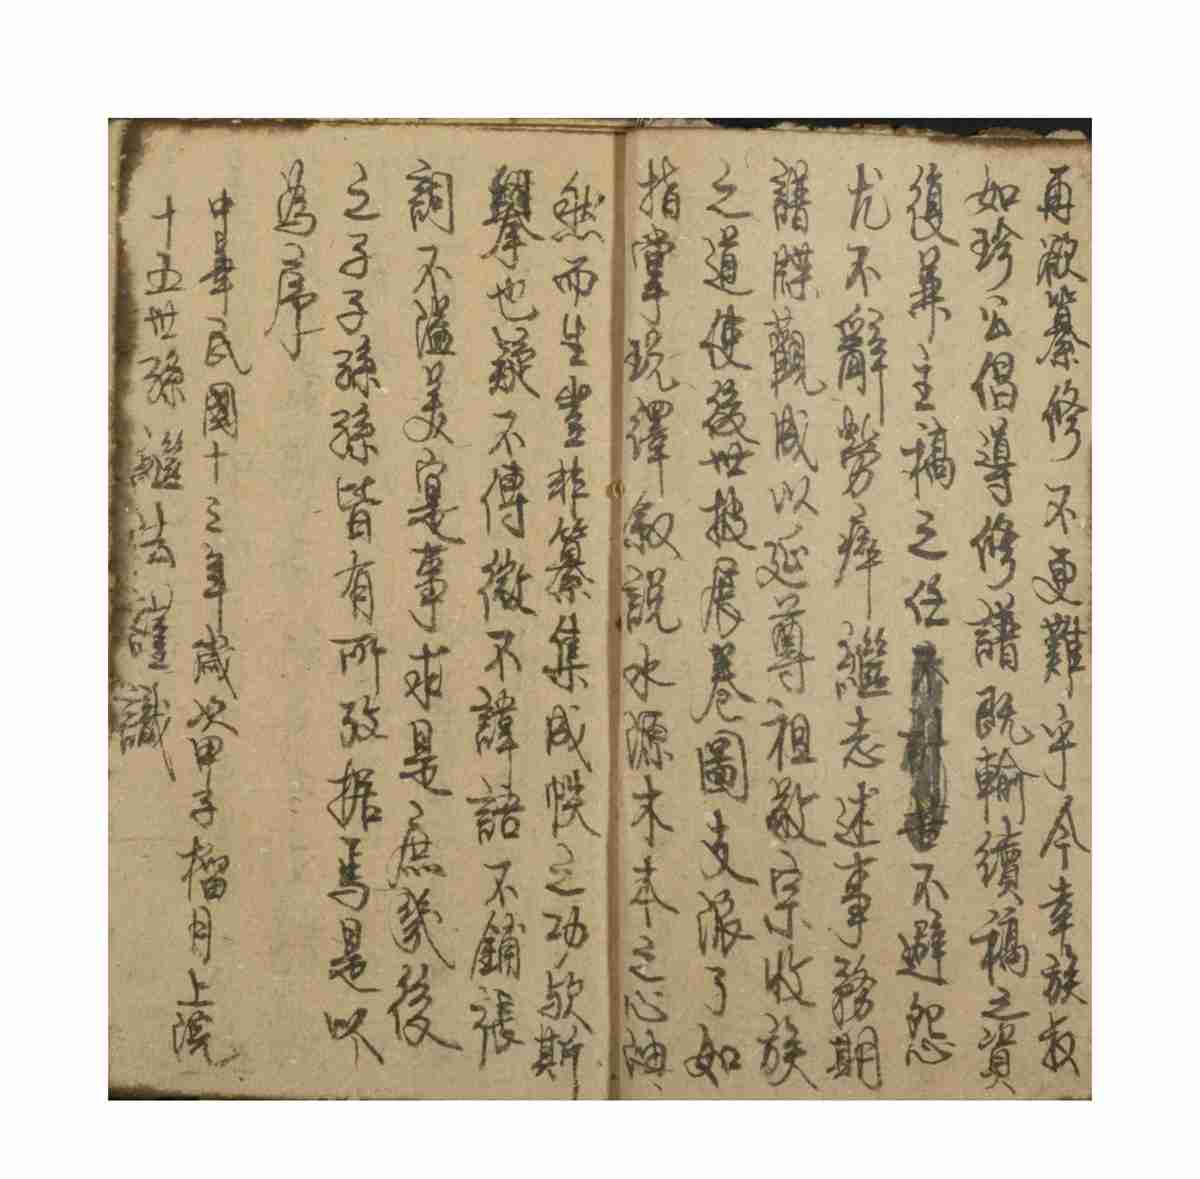 再欲纂修不更難乎今幸族叔
如珍公倡導修譜既輸續稿之資
復兼主稿之任不避怨
尤不辭勞瘁繼志述事務期
譜牒觀成以延尊祖敬宗收族
之道使後世披展卷圖支派了如
指掌玩繹敘說水源木本之心油
然而生豈非纂集成帙之功歟斯
舉也疑不傳微不諱語不鋪張
詞不溢美寔事求是庶幾後
之子子孫孫皆有所攷据焉是以
為序
中華民國十三年歲次甲子榴月上浣
十五世孫繼謹識